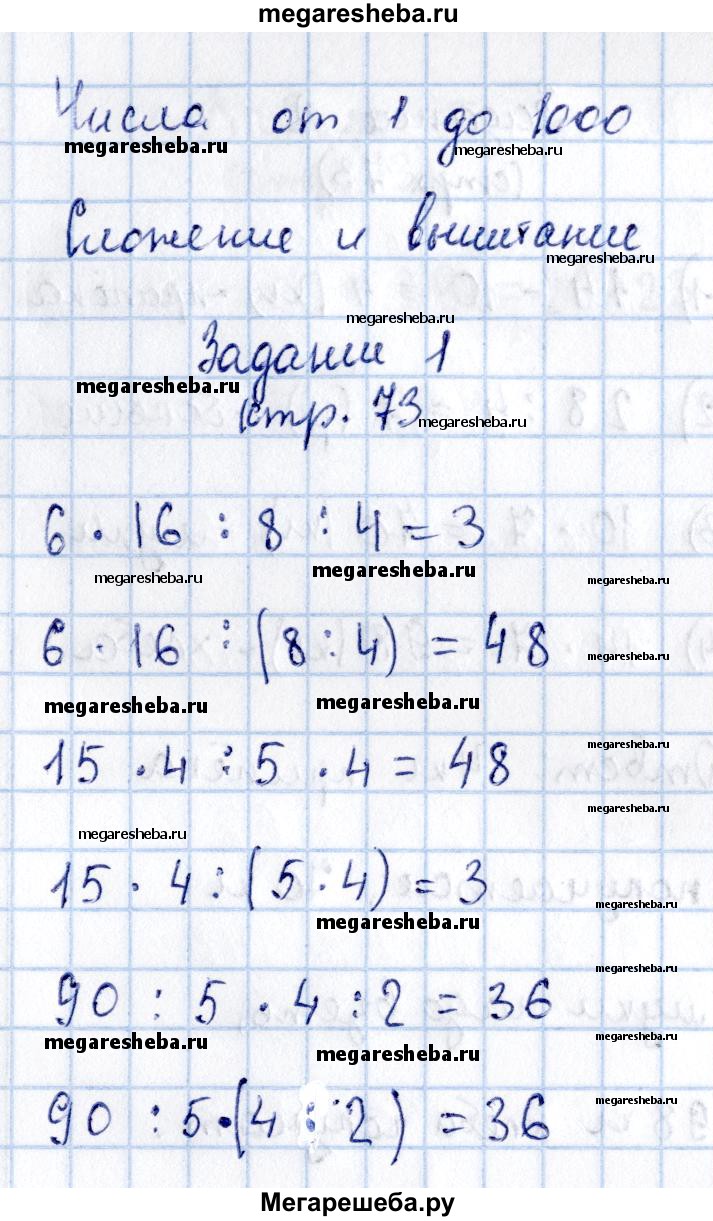 megaresheba.ru
Числа от 1 до 1000
megaresheba.ru
megaresheba.ru
Сложение и вычитание
megaresheba.ru
megaresheba.ru
Задание 1
megaresheba.ru
стр. 73
megaresheba.ru
6 · 16 : 8 : 4 = 3
megaresheba.ru
megaresheba.ru
megaresheba.ru
6 · 16 : (8 : 4) = 48
megaresheba.ru
megaresheba.ru
megaresheba.ru
15 · 4 : 5 · 4 = 48
megaresheba.ru
megaresheba.ru
megaresheba.ru
15 · 4 : (5 · 4) = 3
megaresheba.ru
megaresheba.ru
90 : 5 · 4 : 2 = 36
megaresheba.ru
megaresheba.ru
megaresheba.ru
megaresheba.ru
90 : 5 · (4 : 2) = 36
megaresheba.ru
megaresheba.ru
Мегарешеба.ру